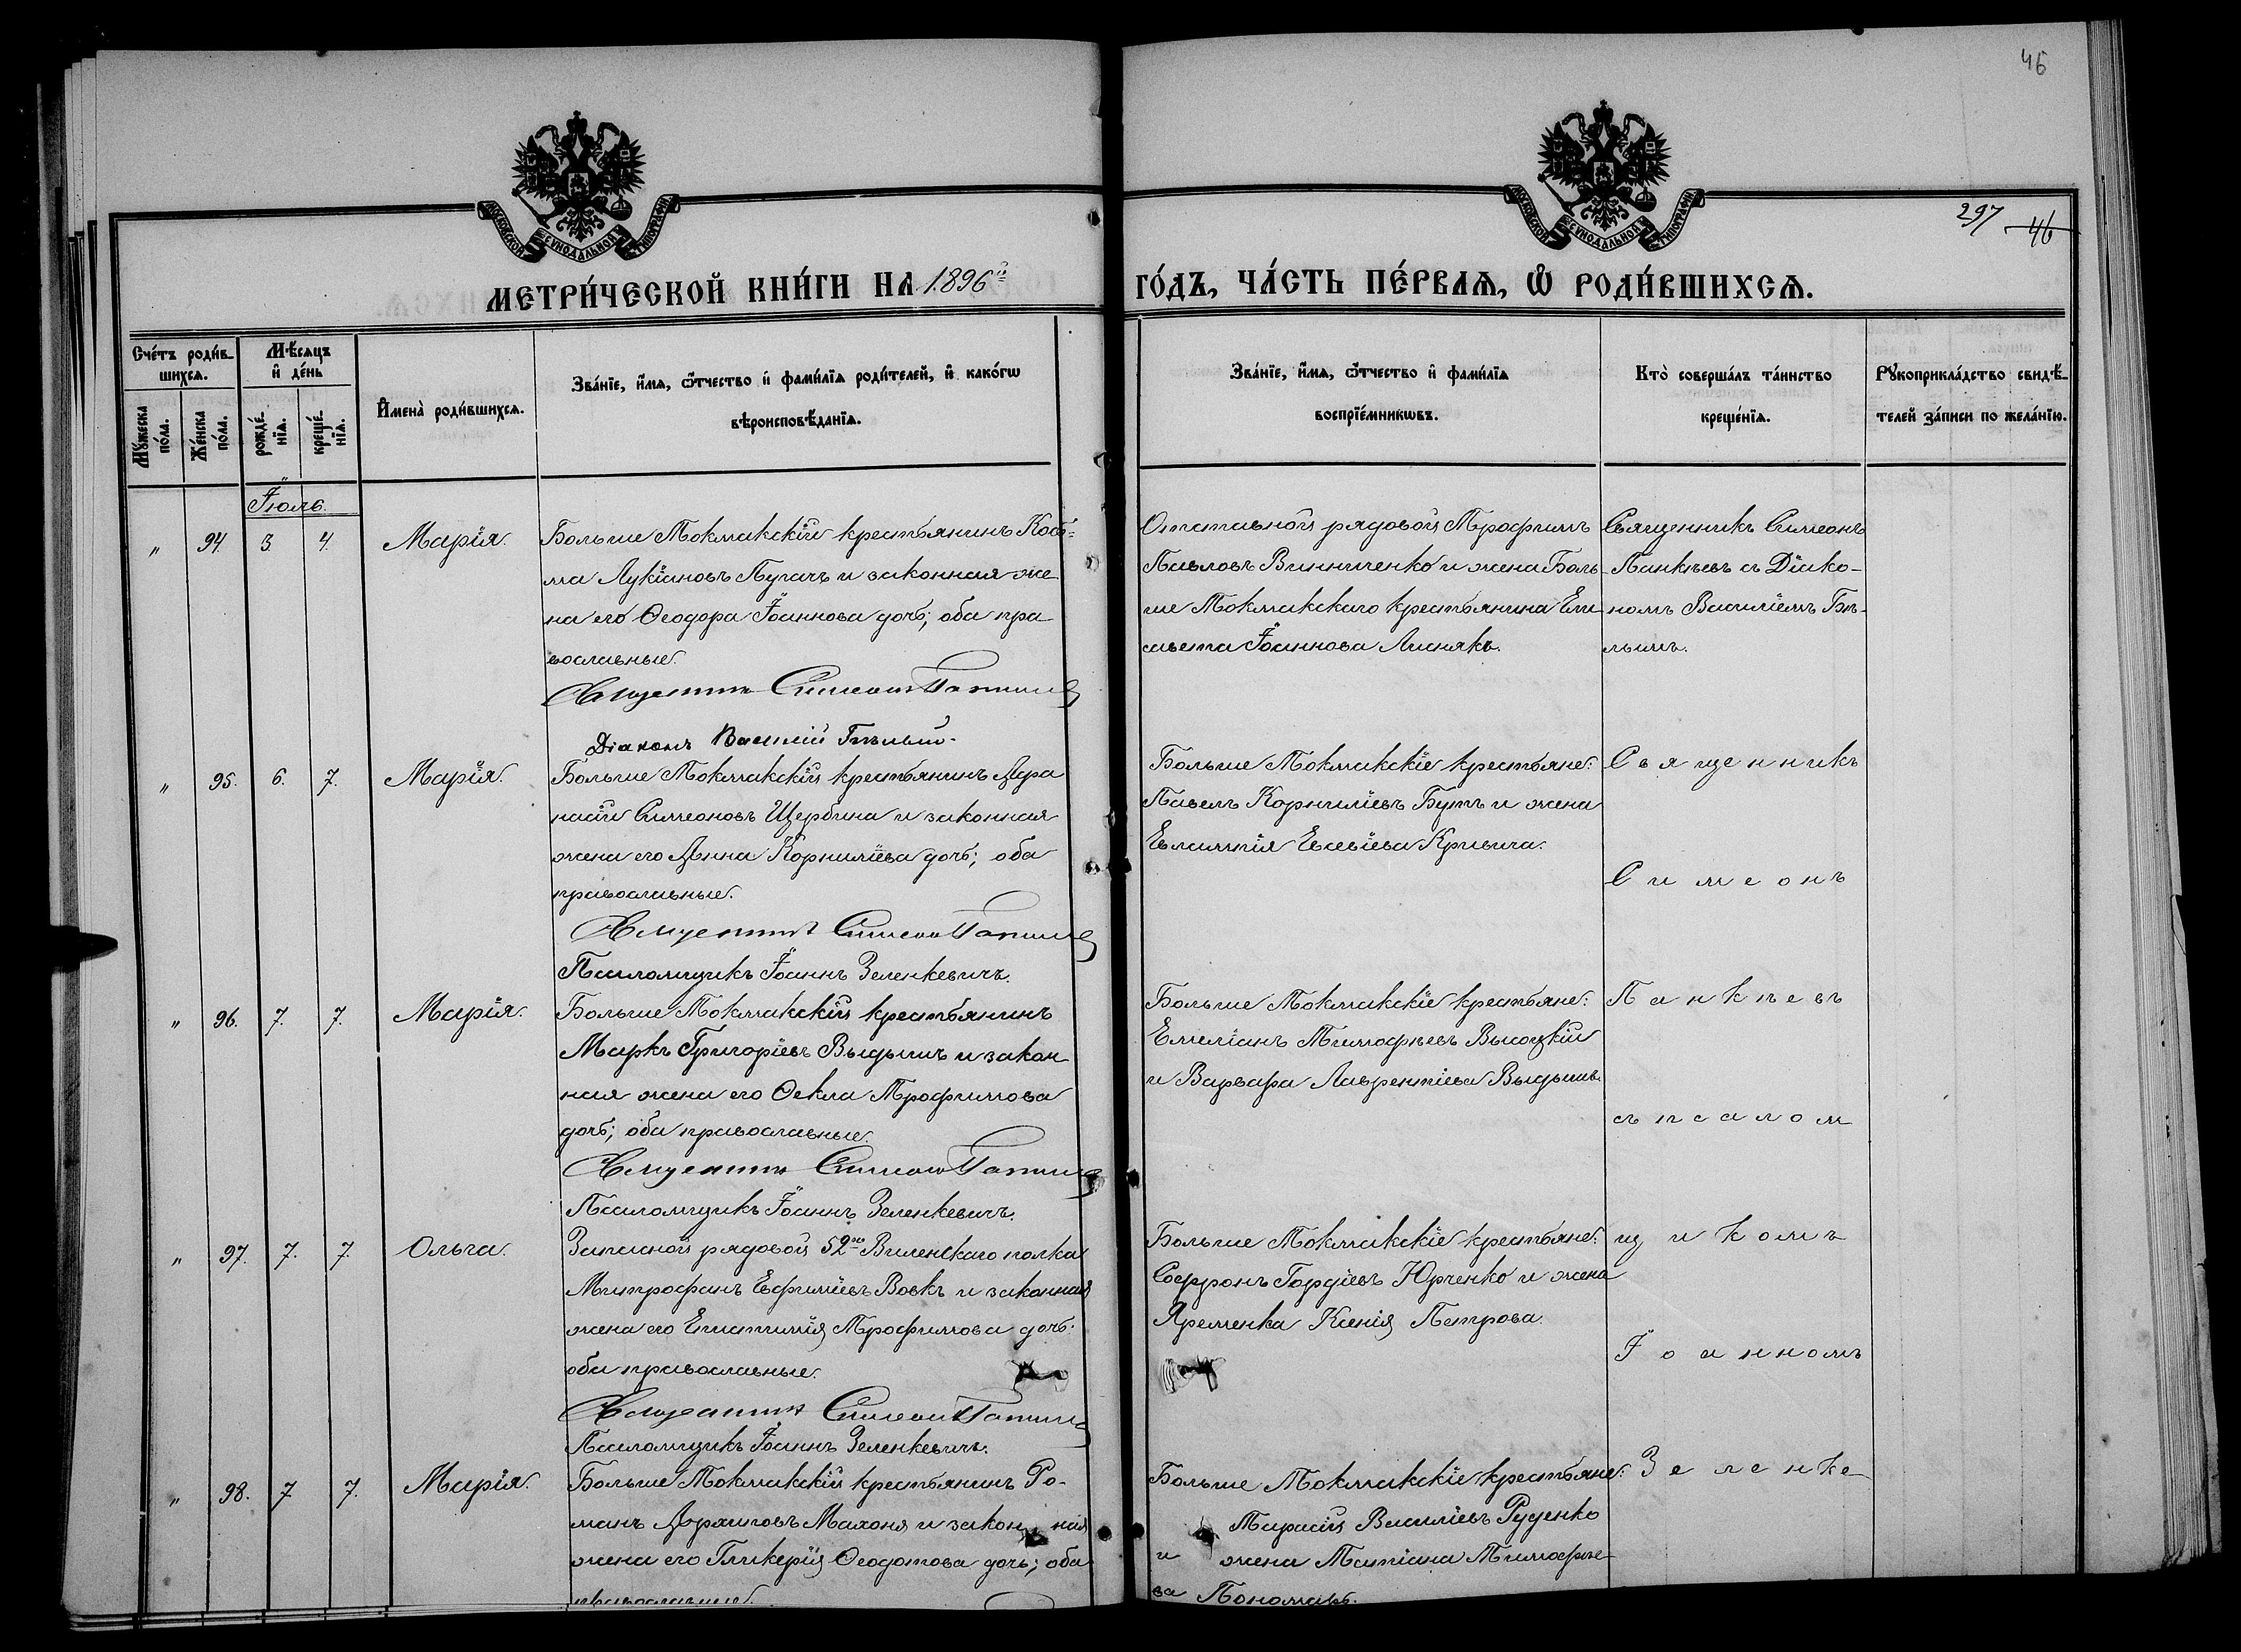 46
МОСКОВСКОЙ СУНОДАЛЬНОЙ ТИПОГРАФІИ
МОСКОВСКОЙ СУНОДАЛЬНОЙ ТИПОГРАФІИ
297 46
МЕТРИ́ЧЕСКОЙ КНИ́ГИ НА 1896й
ГО́ДЪ, ЧА́СТЬ ПЕ́РВАѦ, Ѡ҆ РОДИ́ВШИХСѦ.
Сче́тъ роди́в-
шихсѧ.
Мꙋ́жеска
по́ла.
Же́нска
по́ла.
Мѣ́сѧцъ
и҆ де́нь
рожде́-
нїѧ.
креще́-
нїѧ.
И҆мена̀ роди́вшихсѧ.
Зва́нїе, и҆́мѧ, ѻ҆́тчество и҆ фами́лїѧ роди́телей, и҆ како́гѡ
вѣроисповѣ́данїѧ.
Зва́нїе, и҆́мѧ, ѻ҆́тчество и҆ фами́лїѧ
воспрїе́мникѡвъ.
Кто̀ соверша́лъ та́инство
креще́нїѧ.
Рꙋкоприкла́дство свидѣ́-
телей за́писи по жела́нїю.
Іюль.
" 94. 3. 4. Марія.
Больше Токмакскій крестьянинъ Кось-
ма Лукіановъ Пугачъ и законная же
на его Ѳеодора Іоаннова дочь; оба пра
вославные.
Священникъ Симеонъ Панкѣевъ
Діаконъ Василій Бѣлый.
Отставной рядовой Трофимъ
Павловъ Винниченко и жена Боль-
ше Токмакскаго крестьянина Ели
савета Іоаннова Лиснякъ.
Священникъ Симеонъ
Панкѣевъ съ Діако-
номъ Василіемъ Бѣ-
лымъ.
" 95. 6. 7. Марія.
Больше Токмакскій крестьянинъ Аѳа
насій Симеоновъ Щербина и законная
жена его Анна Корниліева дочь; оба
православные.
Священникъ Симеонъ Панкѣевъ
Псаломщикъ Іоаннъ Зеленкевичъ.
Больше Токмакскіе крестьяне:
Павелъ Корниліевъ Бутъ и жена
Евлампія Евсевіева Кривича.
Священникъ
Симеонъ
" 96. 7. 7. Марія.
Больше Токмакскій крестьянинъ
Маркъ Григоріевъ Выдышъ и закон
ная жена его Ѳекла Трофимова
дочь; оба православные.
Священникъ Симеонъ Панкѣевъ
Псаломщикъ Іоаннъ Зеленкевичъ.
Больше Токмакскіе крестьяне:
Емеліанъ Тимофѣевъ Высоцкій
и Варвара Лаврентіева Выдышъ.
Панкѣевъ
съ псалом
" 97. 7. 7. Ольга.
Запасной рядовой 52го Виленскаго полка
Митрофанъ Евфиміевъ Вовкъ и законная
жена его Епистимія Трофимова дочь.
оба православные.
Священникъ Симеонъ Панкѣевъ
Псаломщикъ Іоаннъ Зеленкевичъ.
Больше Токмакскіе крестьяне:
Софронъ Гордіевъ Юрченко и жена
Яременка Ксенія Петрова.
щикомъ
Іоанномъ
" 98. 7. 7. Марія.
Больше Токмакскій крестьянинъ Ро-
манъ Архиповъ Махоня и закон ная
жена его Гликерія Ѳеодотова дочь; оба
православные.
Больше Токмакскіе крестьяне:
Тарасій Василіевъ Руденко
и жена Татіана Тимофѣе-
ва Пономарь.
Зеленке-